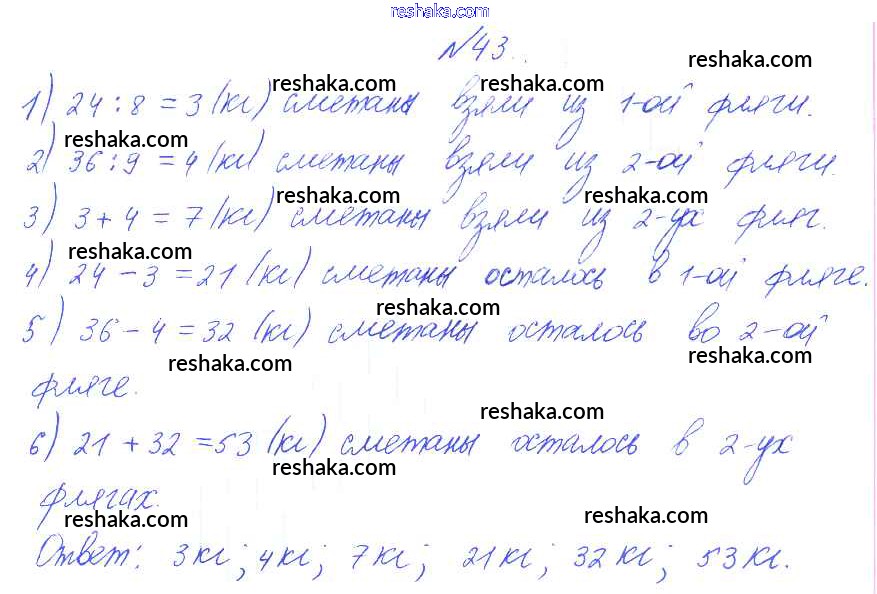 reshaka.com
№43.
reshaka.com
1) 24 : 8 = 3 (кг) сметаны взяли из 1-ой фляги.
reshaka.com reshaka.com
reshaka.com
2) 36 : 9 = 4 (кг) сметаны взяли из 2-ой фляги.
reshaka.com reshaka.com
3) 3 + 4 = 7 (кг) сметаны взяли из 2-ух фляг.
reshaka.com
4) 24 - 3 = 21 (кг) сметаны осталось в 1-ой фляге.
reshaka.com
5) 36 - 4 = 32 (кг) сметаны осталось во 2-ой
reshaka.com reshaka.com
фляге.
reshaka.com
6) 21 + 32 = 53 (кг) сметаны осталось в 2-ух
reshaka.com
флягах.
reshaka.com reshaka.com
Ответ: 3 кг; 4 кг; 7 кг; 21 кг; 32 кг; 53 кг.